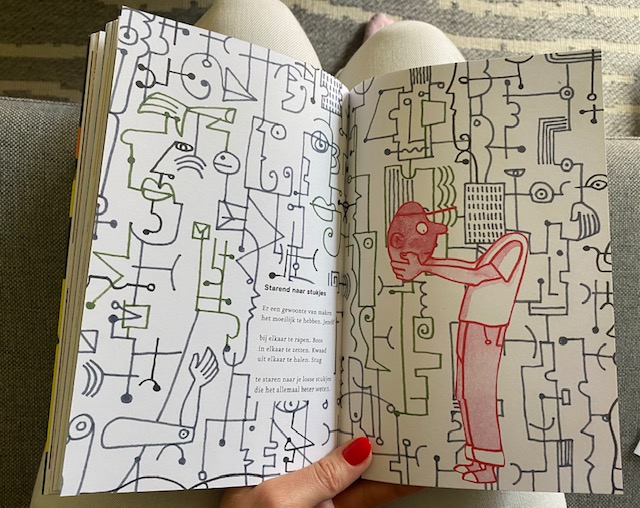 Starend naar stukjes
Er een gewoonte van maken
het moeilijk te hebben. Jezelf
bij elkaar te rapen. Boos
in elkaar te zetten. Kwaad
uit elkaar te halen. Stug
te staren naar je losse stukjes
die het allemaal beter weten.